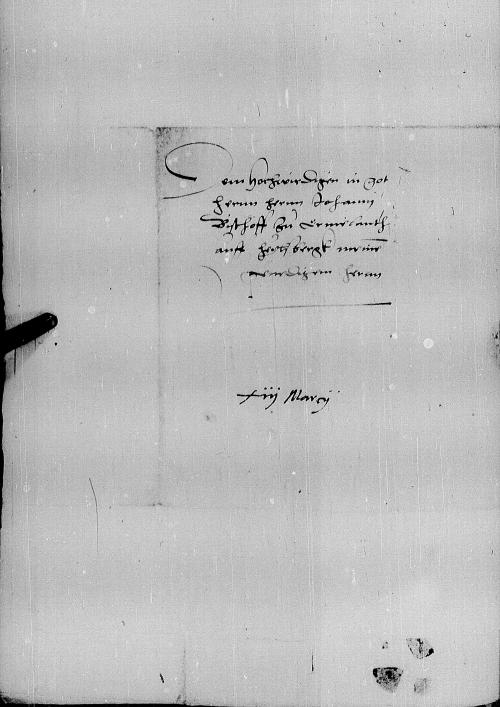 Dem hochwirdigen in got
hernn hernn Johanni
Bischoff zu Ermelanth
auff heilsbergk meinē
gnedigem hernn
xiij Marcij